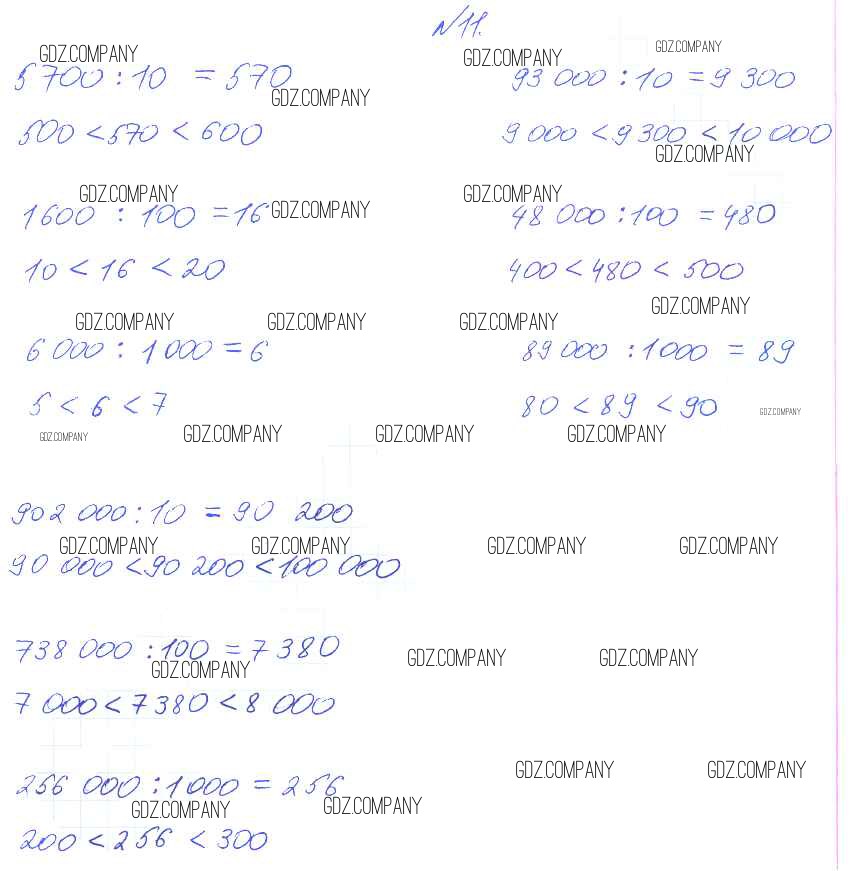 №11.
GDZ.COMPANY GDZ.COMPANY GDZ.COMPANY
5 700 : 10 = 570 93 000 : 10 = 9 300
GDZ.COMPANY
500 < 570 < 600 9 000 < 9 300 < 10 000
GDZ.COMPANY
GDZ.COMPANY GDZ.COMPANY
1 600 : 100 = 16 GDZ.COMPANY 48 000 : 100 = 480
10 < 16 < 20 400 < 480 < 500
GDZ.COMPANY
GDZ.COMPANY GDZ.COMPANY GDZ.COMPANY
6 000 : 1 000 = 6 89 000 : 1 000 = 89
5 < 6 < 7 80 < 89 < 90 GDZ.COMPANY
GDZ.COMPANY GDZ.COMPANY GDZ.COMPANY GDZ.COMPANY
902 000 : 10 = 90 200
GDZ.COMPANY GDZ.COMPANY GDZ.COMPANY GDZ.COMPANY
90 000 < 90 200 < 100 000
738 000 : 100 = 7 380
GDZ.COMPANY GDZ.COMPANY GDZ.COMPANY
7 000 < 7 380 < 8 000
GDZ.COMPANY GDZ.COMPANY
256 000 : 1 000 = 256
GDZ.COMPANY GDZ.COMPANY
200 < 256 < 300